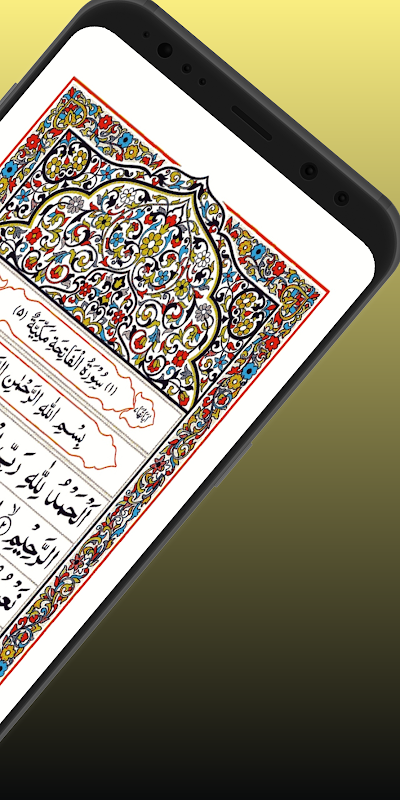 (١) سُوْرَةُ الْفَاتِحَةِ مَكِّيَّةٌ (٥)
بِسْمِ اللّٰهِ الرَّحْمٰنِ
اَلْحَمْدُ لِلّٰهِ رَبِّ
الرَّحِيْمِ